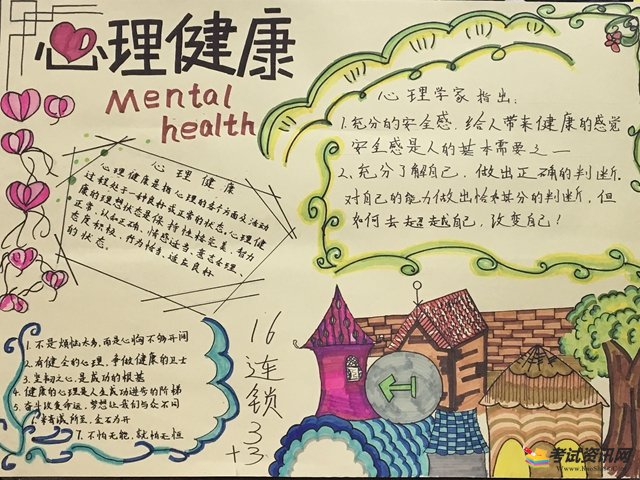 心理健康
Mental
health
心理学家指出:
1.充分的安全感,给人带来健康的感觉
安全感是人的基本需要之一
2.充分了解自己,做出正确的判断
对自己的能力做出恰如其分的判断,但
如何去超越自己,改变自己!
心理健康
心理健康是指心理的各个方面及活动
过程处于一种良好或正常的状态。心理健
康的理想状态是保持性格完美、智力
正常、认知正确、情感适当、意志合理、
态度积极、行为恰当、适应良好
的状态。
1.不是烦恼太多,而是心胸不够开阔
2.有健全的心理,争做健康的卫士
3.坚韧之心,是成功的根基
4.健康的心理是人生成功进步的阶梯
5.奋斗改变命运,梦想让我们与众不同
精诚所至,金石为开
7.不怕无能,就怕无恒
16
连
锁
3
+3
考试资讯网